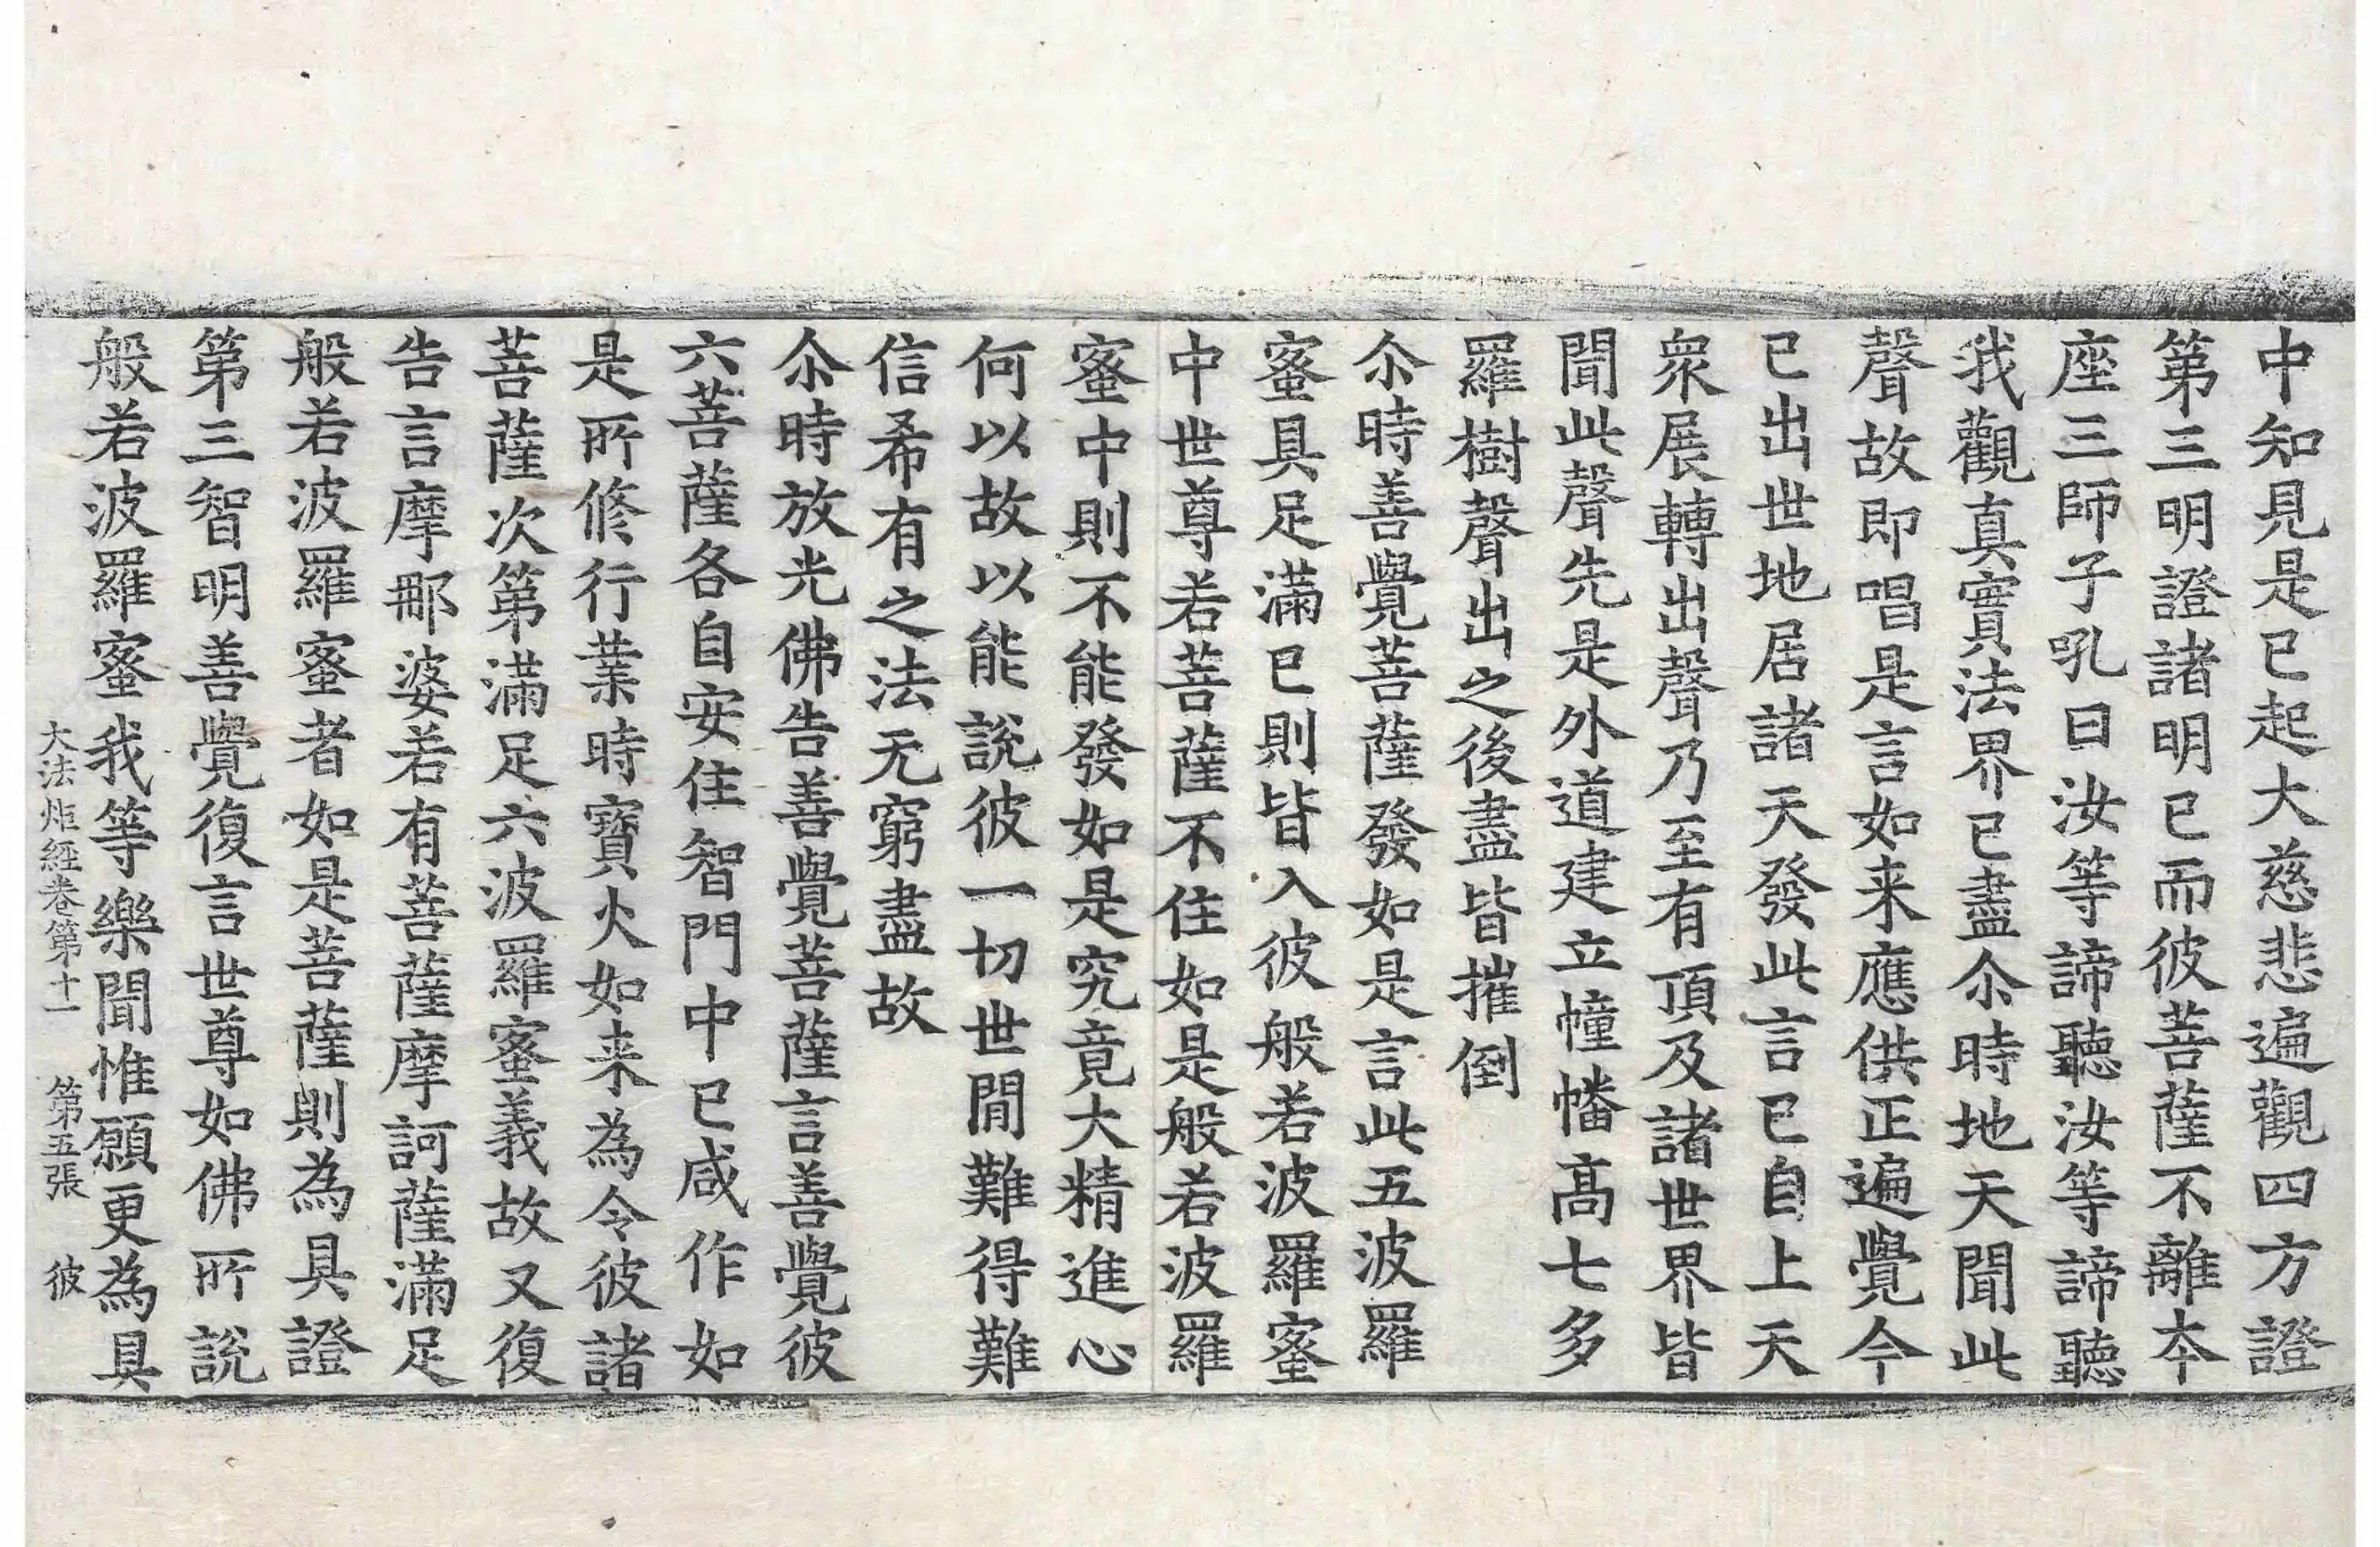 中知見是已起大慈悲遍觀四方證
第三明證諸明已而彼菩薩不離夲
座三師子吼曰汝等諦聽汝等諦聽
我觀真實法界已盡尒時地天聞此
聲故即唱是言如来應供正遍覺今
已出世地居諸天發此言已自上天
衆展轉出聲乃至有頂及諸世界皆
聞此聲先是外道建立幢幡髙七多
羅樹聲出之後盡皆摧倒
尒時善覺菩薩發如是言此五波羅
蜜具足滿已則皆入彼般若波羅蜜
中世尊若菩薩不住如是般若波羅
蜜中則不能發如是究竟大精進心
何以故以能說彼一切世閒難得難
信希有之法无窮盡故
尒時放光佛告善覺菩薩言善覺彼
六菩薩各自安住智門中已咸作如
是所修行業時寶火如来為令彼諸
菩薩次第滿足六波羅蜜義故又復
告言摩那婆若有菩薩摩訶薩滿足
般若波羅蜜者如是菩薩則為具證
第三智明善覺復言世尊如佛所說
般若波羅蜜我等樂聞惟願更為具
大法炬經卷第十一 第五張 彼